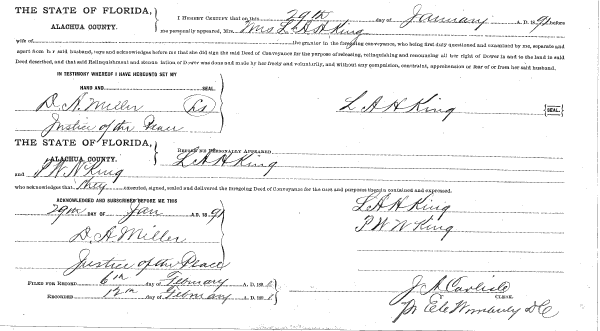 THE STATE OF FLORIDA,
ALACHUA COUNTY.
I HEREBY CERTIFY that on this 29th day of January A. D. 1891 before
me personally appeared, Mrs. Mrs L A H King
wife of the grantor in the foregoing conveyance, who being first duly questioned and examined by me, separate and
apart from her said husband, says and acknowledges before me that she did sign the said Deed of Conveyance for the purpose of releasing, relinquishing and renouncing all her right of Dower in and to the land in said
Deed described, and that said Relinquishment and renunciation of Dower was done and made by her freely and voluntarily, and without any compulsion, constraint, apprehension or fear of or from her said husband.
IN TESTIMONY WHEREOF I HAVE HEREUNTO SET MY
HAND AND SEAL.
D. A. Miller LS L A H King SEAL.
Justice of the Peace
THE STATE OF FLORIDA,
ALACHUA COUNTY.
BEFORE ME PERSONALLY APPEARED L A H King
and P W N King
who acknowledges that they executed, signed, sealed and delivered the foregoing Deed of Conveyance for the uses and purposes therein contained and expressed.
ACKNOWLEDGED AND SUBSCRIBED BEFORE ME THIS
29th DAY OF Jan A. D. 1891
L A H King
P W N King
D. A. Miller
Justice of the Peace
FILED FOR RECORD 6th day of February A. D. 1891
RECORDED 12th day of February A. D. 1891
J A Carlisle
CLERK.
Wimberly D C